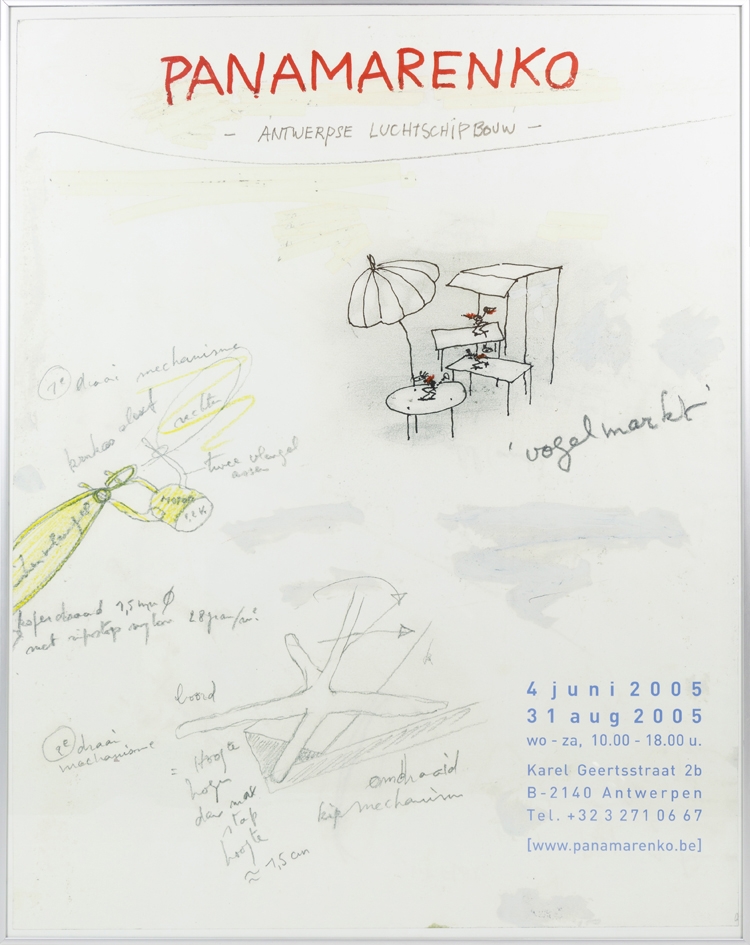 PANAMARENKO
- ANTWERPSE LUCHTSCHIPBOUW -
1e draai mechanisme
rechter
twee vleugel
assen
MOTOR
'vogelmarkt'
koperdraad 1,5 mm Ø
met ripstop nylon 28 gram/m²
boord
2e draai
mechanisme
= Hoogte
hoger
dan mas
stap
hoogte
≈ 1,5 cm
omdraaid
kip mechanism
4 juni 2005
31 aug 2005
wo - za, 10.00 - 18.00 u.
Karel Geertsstraat 2b
B-2140 Antwerpen
Tel. +32 3 271 06 67
[www.panamarenko.be]